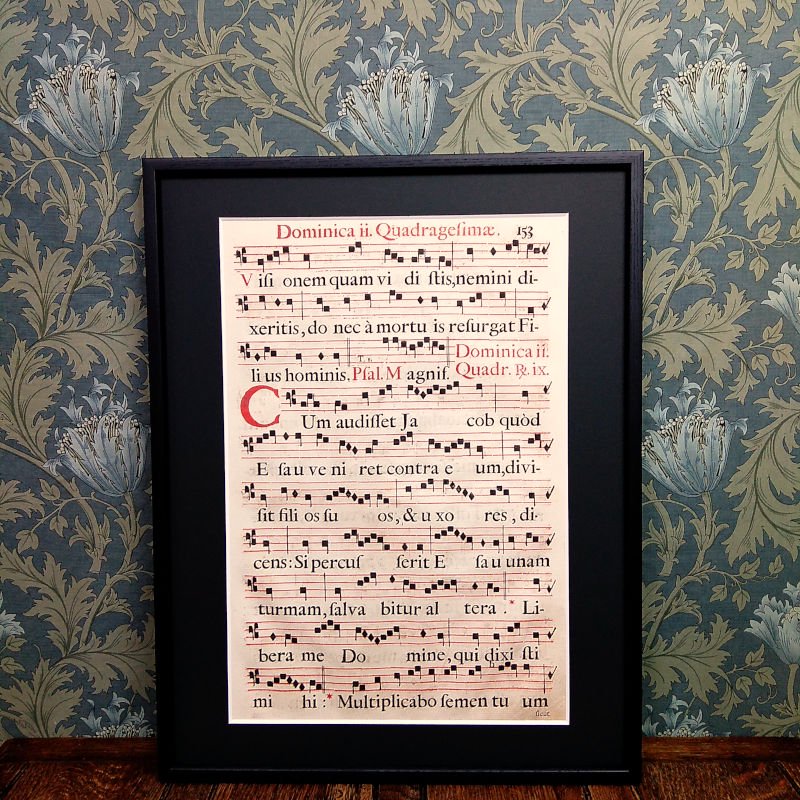 Dominica ii. Quadrageſimæ. 153
V iſi onem quam vi di ſtis,nemini di-
xeritis, do nec à mortu is reſurgat Fi-
li us hominis. Pſal. M agniſ. Dominica ii.
Quadr. ℟. ix.
CUm audiſſet Ja cob quòd
E ſa u ve ni ret contra e um,divi-
ſit fili os ſu os, & u xo res, di-
cens: Si percuſ ſerit E ſa u unam
turmam, ſalva bitur al tera. * Li-
bera me Do mine, qui dixi ſti
mi hi: * Multiplicabo ſemen tu um